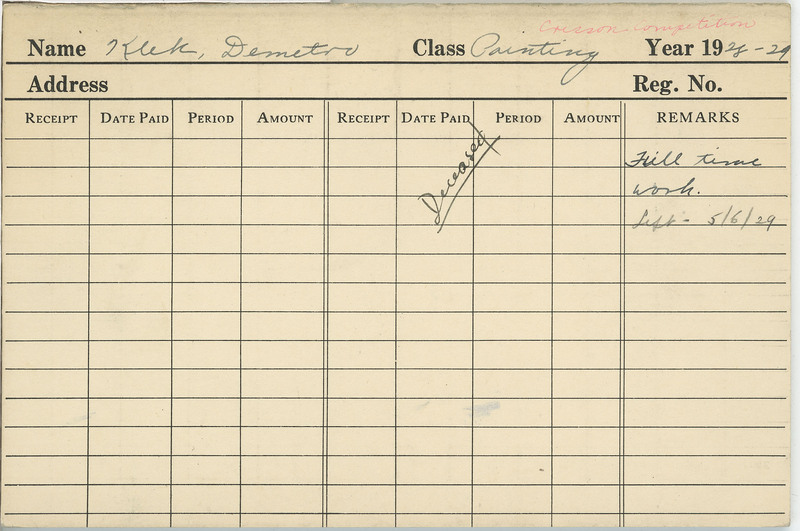 Cresson competition
Name Klek, Demetro Class Painting Year 1928-29
Address Reg. No.
RECEIPT DATE PAID PERIOD AMOUNT RECEIPT DATE PAID PERIOD AMOUNT REMARKS
Deceased
Full time
work.
Left - 5/6/29